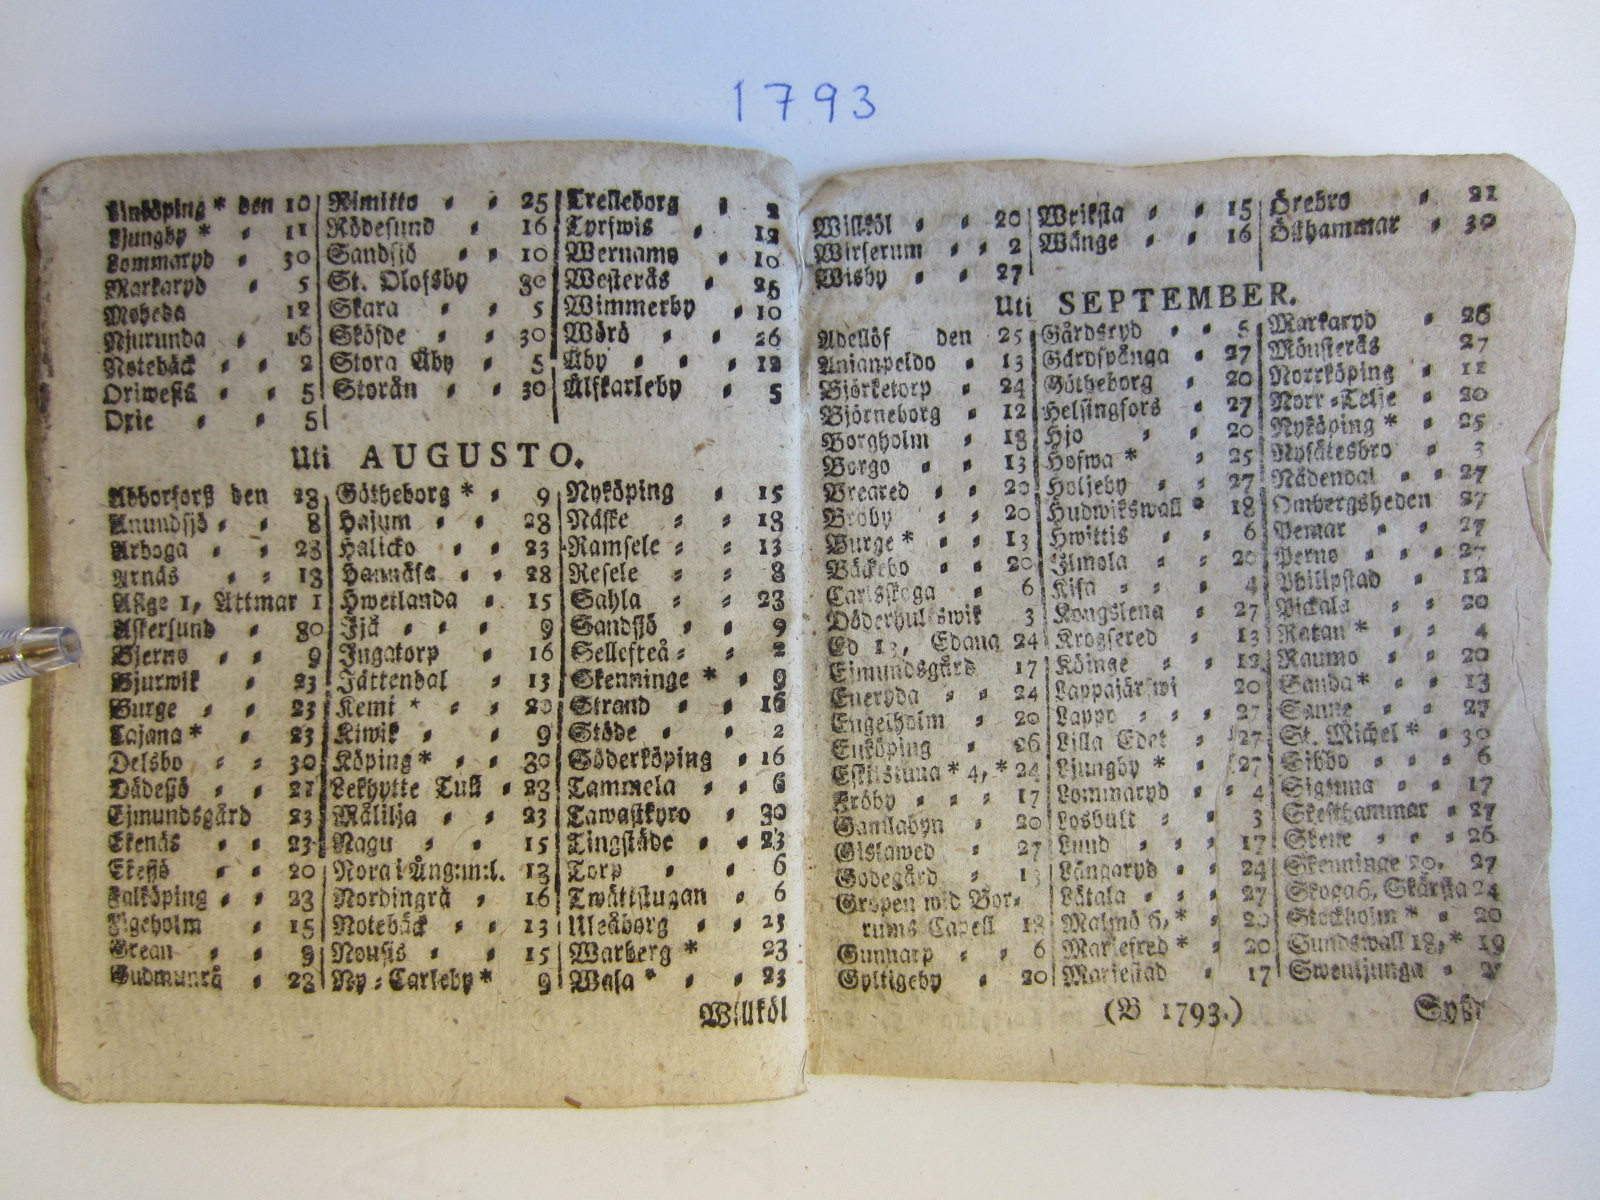 1793
Linköping * den 10
Ljungby * 11
Lommaryd 30
Markaryd 5
Moheda 12
Njurunda 16
Notebäck 2
Oriwesis 5
Oxie 5
Rimitto 25
Rödesund 16
Sandsjö 10
St. Olofsby 30
Skara 5
Sköfde 30
Stora Åby 5
Storån 30
Trelleborg 2
Tyrfwis 12
Wernamo 10
Westerås 26
Wimmerby 10
Wörö 26
Åby 12
Älfkarleby 5
Uti AUGUSTO.
Abborfors den 23
Anundsjö 8
Arboga 23
Arnäs 13
Aske 1, Attmar 1
Askersund 30
Bjerno 9
Bjurwik 23
Burge 23
Cajana * 23
Delsbo 30
Dådesjö 21
Ejmundsgård 23
Ekenäs 23
Ekesjö 20
Falköping 23
Figeholm 15
Grean 9
Gudmunrå 23
Götheborg * 9
Hajum 23
Halicko 23
Hannäsa 28
Hwetlanda 15
Ijä 9
Ingatorp 16
Jättendal 13
Kemi * 20
Kiwik 9
Köping * 30
Lekhytte Tull 23
Målilja 23
Nagu 15
Nora i Ång:m:l. 13
Nordingrå 16
Notebäck 13
Nousis 15
Ny-Carleby * 9
Nyköping 15
Näske 13
Ramsele 13
Resele 8
Sahla 23
Sandsjö 9
Sellefteå 2
Skenninge * 9
Strand 16
Stöde 2
Söderköping 16
Tammela 6
Tawastkyro 30
Tingstäde 23
Torp 6
Twättstugan 6
Uleåborg 23
Warberg * 23
Wasa * 23
Willköl
Willköl 20
Wirserum 2
Wisby 27
Wriksta 15
Wånge 16
Örebro 21
Östhammar 30
Uti SEPTEMBER.
Adellöf den 25
Anianpeldo 13
Björketorp 24
Björneborg 12
Borgholm 18
Borgo 13
Breared 20
Broby 20
Burge * 13
Bäckebo 20
Carlsskoga 6
Döderhultswik 3
Ed 13, Edana 24
Ejmundsgård 17
Eneryda 24
Engelholm 20
Enköping 26
Eskilstuna * 4, * 24
Fröby 17
Gamlabyn 20
Gislawed 27
Godegård 13
Gropen wid Bor-
rums Capell 18
Gunnarp 6
Gyltigeby 20
Gårdsryd 5
Gärdspånga 27
Götheborg 20
Helsingfors 27
Hjo 20
Hofwa * 25
Holjeby 27
Hudwikswall * 18
Hwittis 6
Ilmola 20
Kisa 4
Kongslena 27
Krogsered 13
Köinge 12
Lappajärfwi 20
Lappo 27
Lilla Edet 27
Ljungby * 27
Lommaryd 4
Losbult 3
Lund 17
Långaryd 24
Låtala 27
Malmö 6, * 20
Mariefred * 20
Mariestad 17
Markaryd 26
Mönsterås 27
Norrköping 11
Norr-Telje 20
Nyköping * 25
Nysätesbro 3
Nådendal 27
Ombergsheden 27
Pemar 27
Perno 27
Philipstad 12
Pickala 20
Ratan * 4
Raumo 20
Sanda * 13
Sanne 27
St. Michel * 30
Sibbo 6
Sigtuna 17
Skesthammar 27
Skene 26
Skenninge 20, 27
Skoga 6, Skärsta 24
Stockholm * 20
Sundswall 18, * 19
Swenljunga
(B 1793.)